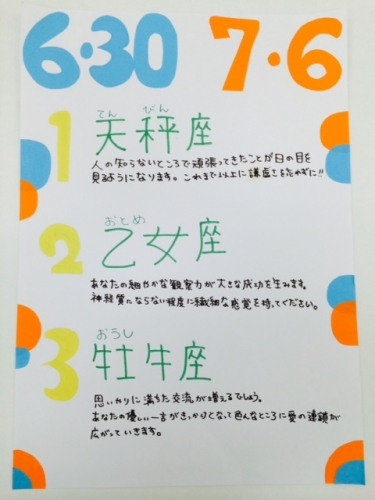 6・30 7・6
てん びん
1 天秤座
人の知らないところで頑張ってきたことが日の目を
見るようになります。これまで以上に謙虚さを忘れずに!!
おとめ
2 乙女座
あなたの細やかな観察力が大きな成功を生みます。
神経質にならない程度に繊細な感覚を持ってください。
おうし
3 牡牛座
思いやりに満ちた交流が増えるでしょう。
あなたの優しい一言がきっかけとなって色んなところに愛の連鎖が
広がっていきます。